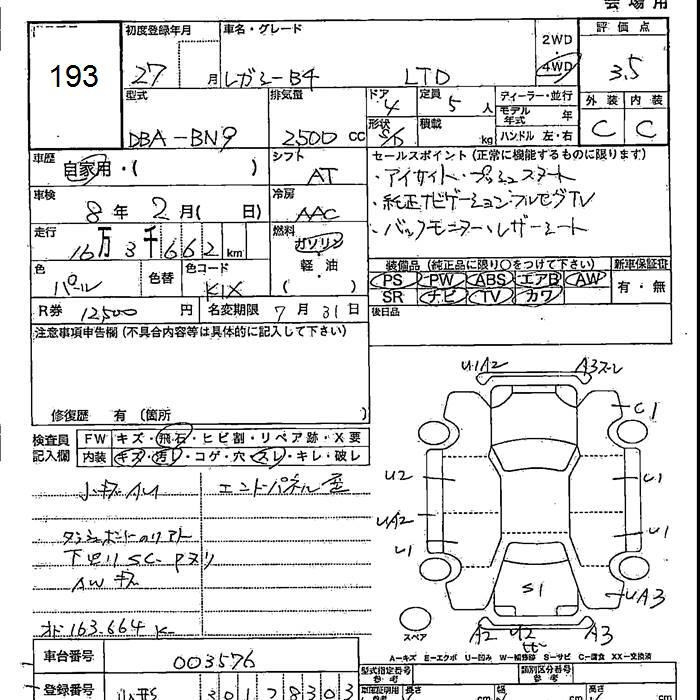 会場用
193
初度登録年月
27 月
車名・グレード
レガシーB4 LTD
2WD
・
4WD
評価点
3.5
外装 内装
C C
型式
DBA-BN9
排気量
2500 cc
ドア
4
形状
定員
5 人
積載
kg
ディーラー・並行
モデル年式 年
ハンドル 左・右
車歴
自家用・( )
シフト
AT
セールスポイント(正常に機能するものに限ります)
・アイサイト・プッシュスタート
・純正ナビゲーション・フルセグTV
・バックモニター・レザーシート
車検
8年 2月( 日)
冷房
AAC
走行
16万3千662km
燃料
ガソリン
軽・油
( )
色
パール
色替
色コード
K1X
装備品(純正品に限り○をつけて下さい)
PS PW ABS エアB AW
SR ナビ TV カワ
新車保証書
有・無
R券 12,500 円
名変期限 7月31日
後日品
注意事項申告欄(不具合内容等は具体的に記入して下さい)
修復歴 有(箇所 )
検査員記入欄
FW キズ・飛石・ヒビ割・リペア跡・X要
内装 キズ・汚レ・コゲ・穴・スレ・キレ・破レ
小キズAU
エンドパネル歪
下廻りSC-Pヌリ
AWキズ
オド163.664K-
U1A2
A3スレ
C1
U2
U1
UA2
U1
U1
S1
UA3
スペア
A2
U2
A3
A-キズ E-エクボ U-凹み W-補修跡 S-サビ C-腐食 XX-交換済
車台番号
003576
登録番号
301
型式指定番号
参考
類別区分番号
参考